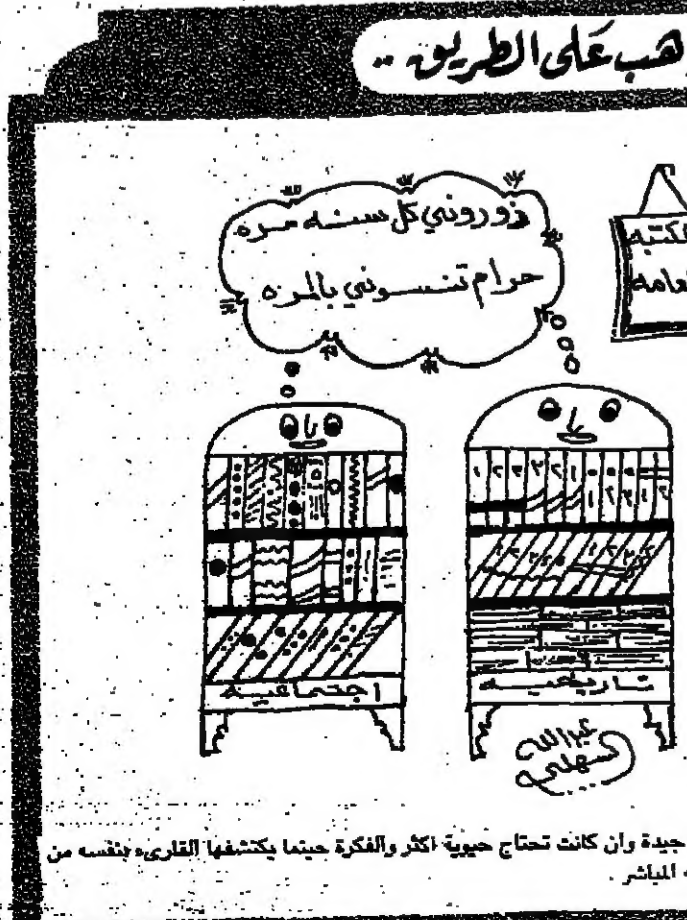 هب على الطريق ..
زوروني كل سنه مره
حرام تنسوني بالمره
لمكتبه
لعامه
اجتماعيه
تاريخيه
عبدالله
السهلي
جيدة وان كانت تحتاج حيوية اكثر والفكرة حينما يكتشفها القارىء بنفسه من
المباشر .